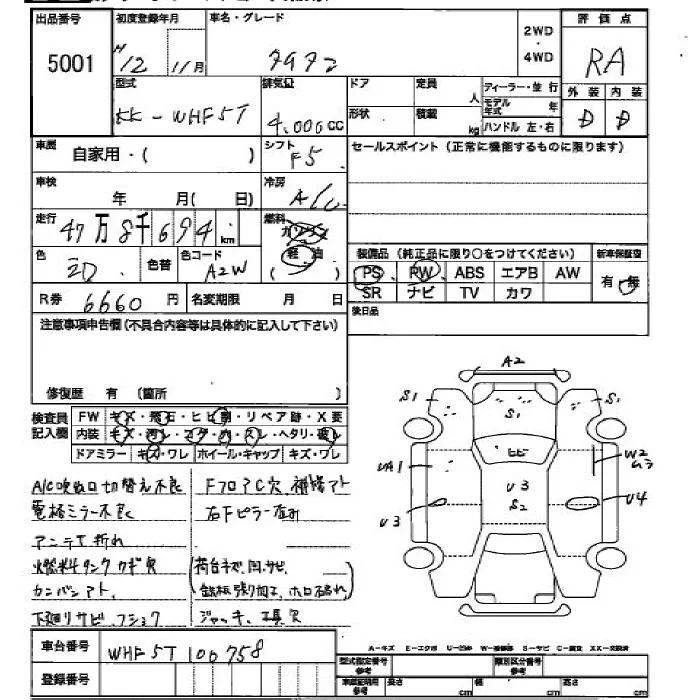 出品番号 初度登録年月 車名・グレード 2WD・4WD 評価点
5001 H12 11月 タイタン RA
型式 排気量 ドア 定員 人 ディーラー・並行 外装 内装
KK-WHF5T 4.000cc 形状 積載 kg モデル年式 年 ハンドル 左・右 D D
車歴 自家用・( ) シフト F5 セールスポイント (正常に機能するものに限ります)
車検 年 月( 日) 冷房 A/C
走行 47万8千694km 燃料 ガソリン
軽油
色 色替 色コード A2W 装備品 (純正品に限り○をつけてください) 新車保証書
PS PW ABS エアB AW 有・無
R券 6660円 名変期限 月 日 SR ナビ TV カワ
注意事項申告欄(不具合内容等は具体的に記入して下さい) 後日品
修復歴 有 (箇所 )
検査員 FW キズ・飛石・ヒビ割・リペア跡・X要
記入欄 内装 キズ・汚レ・コゲ・穴・スレ・ヘタリ・破レ
ドアミラー キズ・ワレ ホイール・キャップ キズ・ワレ
A/C吹出口切替え不良 Fフロア穴、補修アト
電格ミラー不良 右Fピラー歪み
アンテナ折れ
燃料タンクカギ欠 (荷台キズ、凹、サビ
カンバンアト、 鉄板張り加工、ホロ破れ)
下廻りサビ、フショク ジャッキ、工具欠
A2
S1 S1 S1
ヒビ W2
UA1 U3
S2
U3 U4
A-キズ E-エクボ U-凹み W-補修跡 S-サビ C-腐食 XX-交換済
車台番号 WHF5T 100758
登録番号
型式指定番号 参考 類別区分番号 参考
車庫証明用 参考 長さ cm 幅 cm 高さ cm